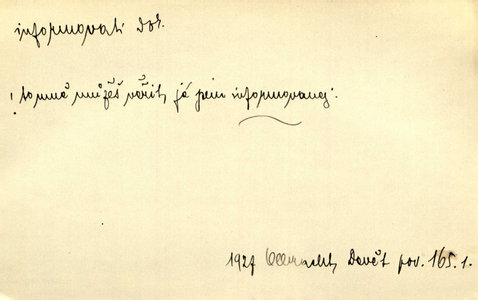 informovati dok.
! to mně můžeš věřit, já jsem informovanej.
1927 Olbracht, Devět pov. 165.1.